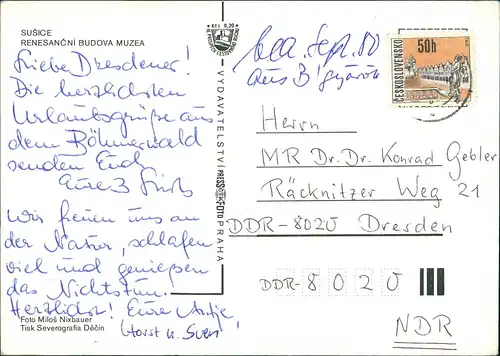 SUŠICE
RENESANČNÍ BUDOVA MUZEA
Liebe Dresdener!
Die herzlichsten
Urlaubsgrüße aus
dem Böhmerwald
senden Euch
Eure 3
Wir freuen uns an
der Natur, schlafen
viel und genießen
das Nichtstun.
Herzlichst! Eure Antje,
Horst u. Sven
Foto Miloš Nixbauer
Tisk Severografia Děčín
Kčs 0,20
VYDAVATELSTVÍ PRESSFOTO PRAHA
Sept. 80
aus
ČESKOSLOVENSKO
50h
Herrn
MR Dr. Dr. Konrad Gebler
Räcknitzer Weg 21
DDR-8020 Dresden
DDR-8020
NDR